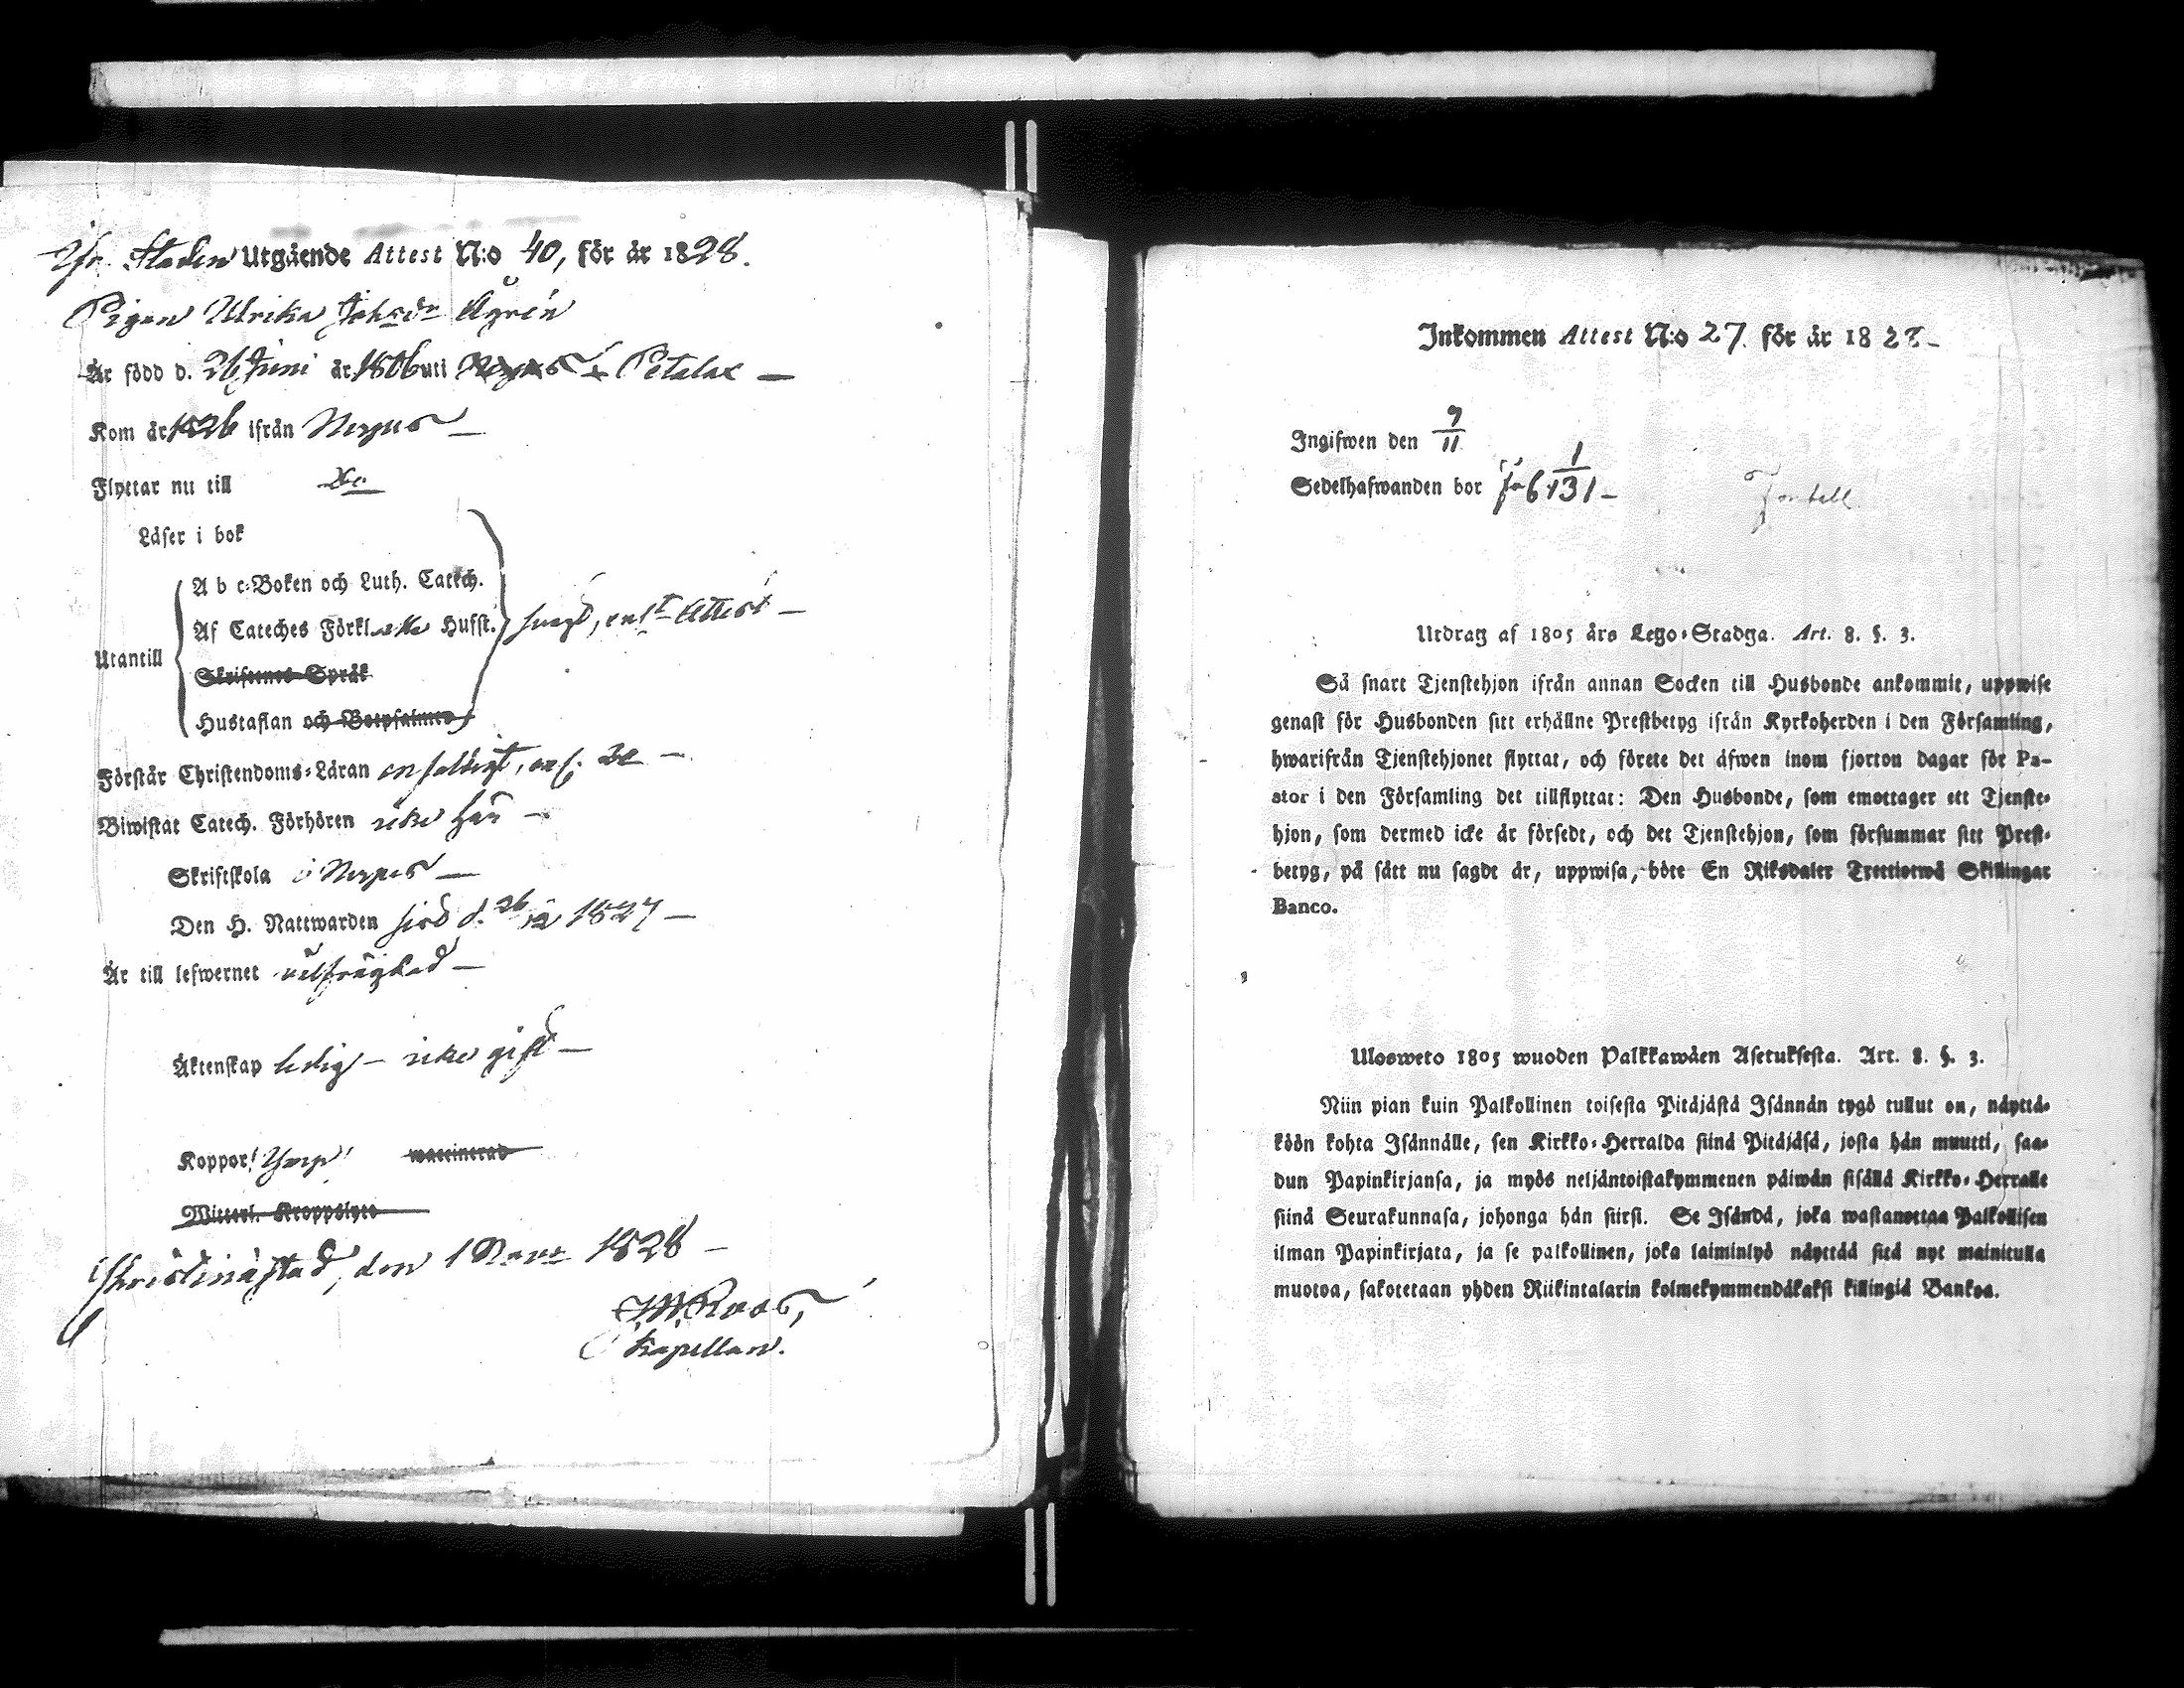 Fr. Staden Utgående Attest N:o 40, för år 1828.
Pigan Ulrika Johsdr Ågrén
Är född d. 26 Juni år 1806 uti Petalax —
Kom år 1826 ifrån Nerpes —
Flyttar nu till Do
Läser i bok
A b c-Boken och Luth. Catech.
Af Cateches Förkl. Hufst. svagt, enl. Attest —
Utantill
Skriftenes Språk
Hustaflan och Botpsalmer
Förstår Christendoms-Läran enfaldigt, enl. do —
Biwistat Catech. Förhören icke här —
Skriftskola i Nerpes —
Den H. Nattwarden sist d. 26/12 1827 —
Är till lefwernet välfrägdad —
Äktenskap ledig — icke gift —
Koppor wattinerad
Witterl. Kroppslyte
Christinæstad, den 1 Novr 1828 —
Kapellan.
Inkommen Attest N:o 27. för år 1828 —
Ingifwen den 9/11
Sedelhafwanden bor
Utdrag af 1805 års Lego-Stadga. Art. 8. §. 3.
Så snart Tjenstehjon ifrån annan Socken till Husbonde ankommit, uppwise
genast för Husbonden sitt erhållne Prestbetyg ifrån Kyrkoherden i den Församling,
hwarifrån Tjenstehjonet flyttat, och förete det äfwen inom fjorton dagar för Pa-
stor i den Församling det tillflyttat: Den Husbonde, som emottager ett Tjenste-
hjon, som dermed icke är försedt, och det Tjenstehjon, som försummar sitt Prest-
betyg, på sätt nu sagdt är, uppwisa, böte En Riksdaler Trettiotwå Skillingar
Banco.
Ulosweto 1805 wuoden Palkkawäen Asetuksesta. Art. 8. §. 3.
Niin pian kuin Palkollinen toisesta Pitäjästä Isännän tygö tullut on, näyttä-
köön kohta Isännälle, sen Kirkko-Herralda siinä Pitäjäsä, josta hän muutti, saa-
dun Papinkirjansa, ja myös neljäntoistakymmenen päiwän sisällä Kirkko-Herralle
siinä Seurakunnasa, johonga hän siirsi. Se Isändä, joka wastanottaa Palkollisen
ilman Papinkirjata, ja se palkollinen, joka laiminlyö näyttää sitä nyt mainitulla
muotoa, sakotetaan yhden Riikintalarin kolmekymmendäkaksi killingiä Bankoa.